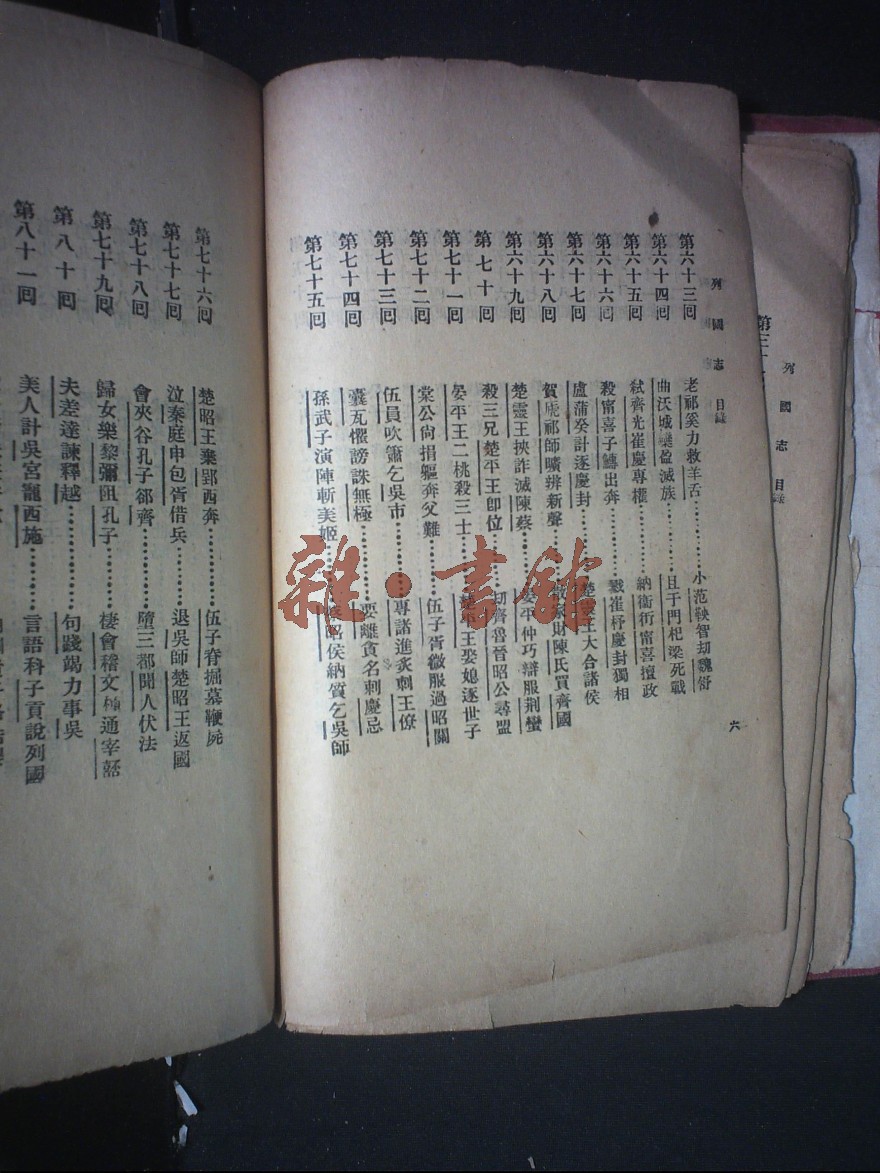 列國志 目錄
第六十三囘 老祁奚力救羊舌…………小范鞅智劫魏舒
第六十四囘 曲沃城欒盈滅族…………且于門杞梁死戰
第六十五囘 弒齊光崔慶專權…………納衛衎甯喜擅政
第六十六囘 殺甯喜子鱄出奔…………戮崔杼慶封獨相
第六十七囘 盧蒲癸計逐慶封…………楚靈王大合諸侯
第六十八囘 賀虒祁師曠辨新聲…………散家財陳氏買齊國
第六十九囘 楚靈王挾詐滅陳蔡…………晏平仲巧辯服荆蠻
第七十囘 殺三兄楚平王卽位…………劫齊魯晉昭公尋盟
第七十一囘 晏平王二桃殺三士…………楚平王娶媳逐世子
第七十二囘 棠公尙捐軀奔父難…………伍子胥微服過昭關
第七十三囘 伍員吹簫乞吳市…………專諸進炙刺王僚
第七十四囘 囊瓦懼謗誅無極…………要離貪名刺慶忌
第七十五囘 孫武子演陣斬美姬…………蔡昭侯納質乞吳師
六
第七十六囘 楚昭王棄郢西奔…………伍子胥掘墓鞭屍
第七十七囘 泣秦庭申包胥借兵…………退吳師楚昭王返國
第七十八囘 會夾谷孔子郤齊…………墮三都聞人伏法
第七十九囘 歸女樂黎彌阻孔子…………棲會稽文種通宰嚭
第八十囘 夫差違諫釋越…………句踐竭力事吳
第八十一囘 美人計吳宮寵西施…………言語科子貢說列國
列國志 目錄
雜·書館